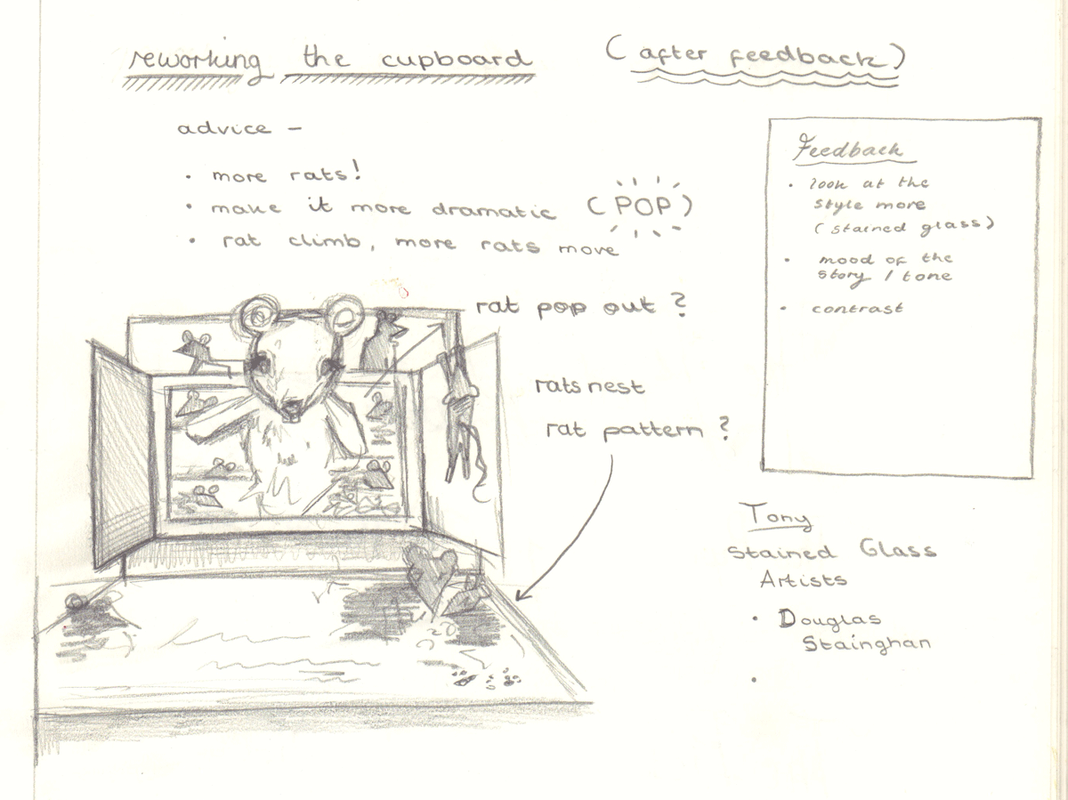 reworking the cupboard (after feedback)
advice –
• more rats!
• make it more dramatic (POP)
• rat climb, more rats move
rat pop out ?
rats nest
rat pattern ?
Feedback
• look at the
style more
(stained glass)
• mood of the
story / tone
• contrast
Tony
Stained Glass
Artists
• Douglas
Stainghan
•